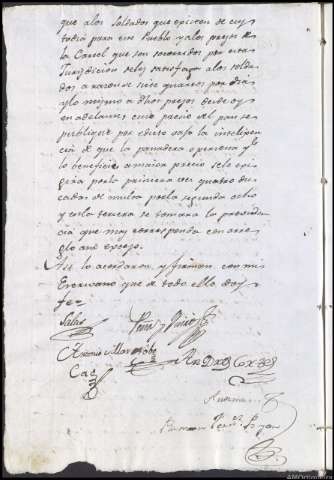 que a los Soldados que existen de cus
todia para este Pueblo y alos presos de
la Carcel que son socorridos por esta
Jurisdicion seles satisfaga alos solda
dos a razon de siete quartos por dia
y lo mismo a dhos presos desde oy
en adelante cuio precio del pan se
publique por edicto vajo la intelixen
cia de que la panadera o persona q lo
lo beneficie a maior precio sele exi
gira por la primera vez quatro du
cados de multa por la segunda ocho
y en la tercera se tomara la providen
cia que mas corresponda con arre
glo a ne exceso.
Asi lo acordaron y firman con mi
Escrivano que de todo ello doy
fee
Antonio Villar
Cao
Ante mi